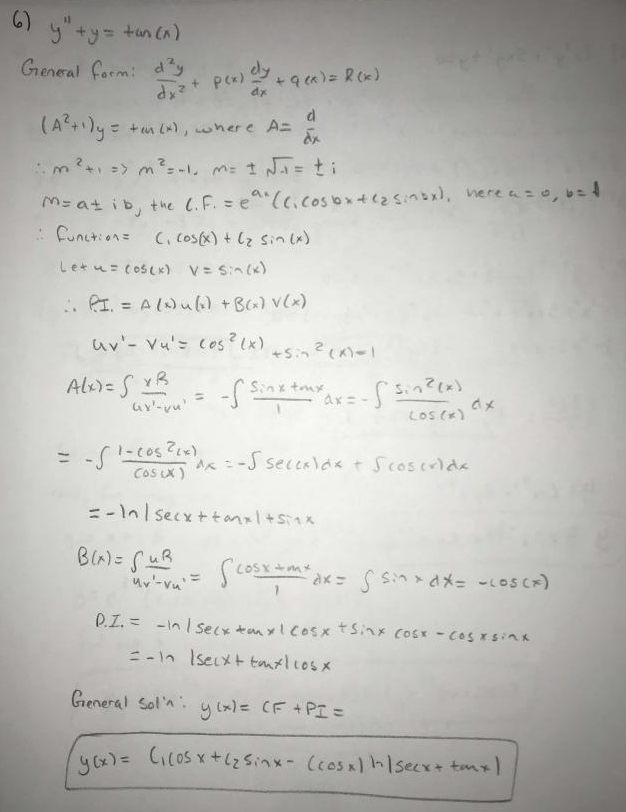 6) y'' + y = tan(x)
General form: d²y/dx² + p(x) dy/dx + q(x) = R(x)
(A²+1)y = tan(x), where A = d/dx
∴ m²+1 => m² = -1, m = ± √-1 = ± i
m = a ± ib, the C.F. = e^ax (C₁ cosbx + C₂ sinbx), here a = 0, b = 1
∴ function = C₁ cos(x) + C₂ sin(x)
Let u = cos(x) v = sin(x)
∴ P.I. = A(x)u(x) + B(x)v(x)
uv' - vu' = cos²(x) + sin²(x) = 1
A(x) = ∫ vR/uv'-vu' = -∫ sinx tanx/1 dx = -∫ sin²(x)/cos(x) dx
= -∫ 1-cos²(x)/cos(x) dx = -∫ sec(x)dx + ∫ cos(x)dx
= -ln|secx + tanx| + sinx
B(x) = ∫ uR/uv'-vu' = ∫ cosx tanx/1 dx = ∫ sinx dx = -cos(x)
P.I. = -ln|secx tanx| cosx + sinx cosx - cosx sinx
= -ln |secx + tanx| cosx
General sol'n: y(x) = CF + PI =
y(x) = C₁cosx + C₂ sinx - (cosx) ln|secx + tanx|